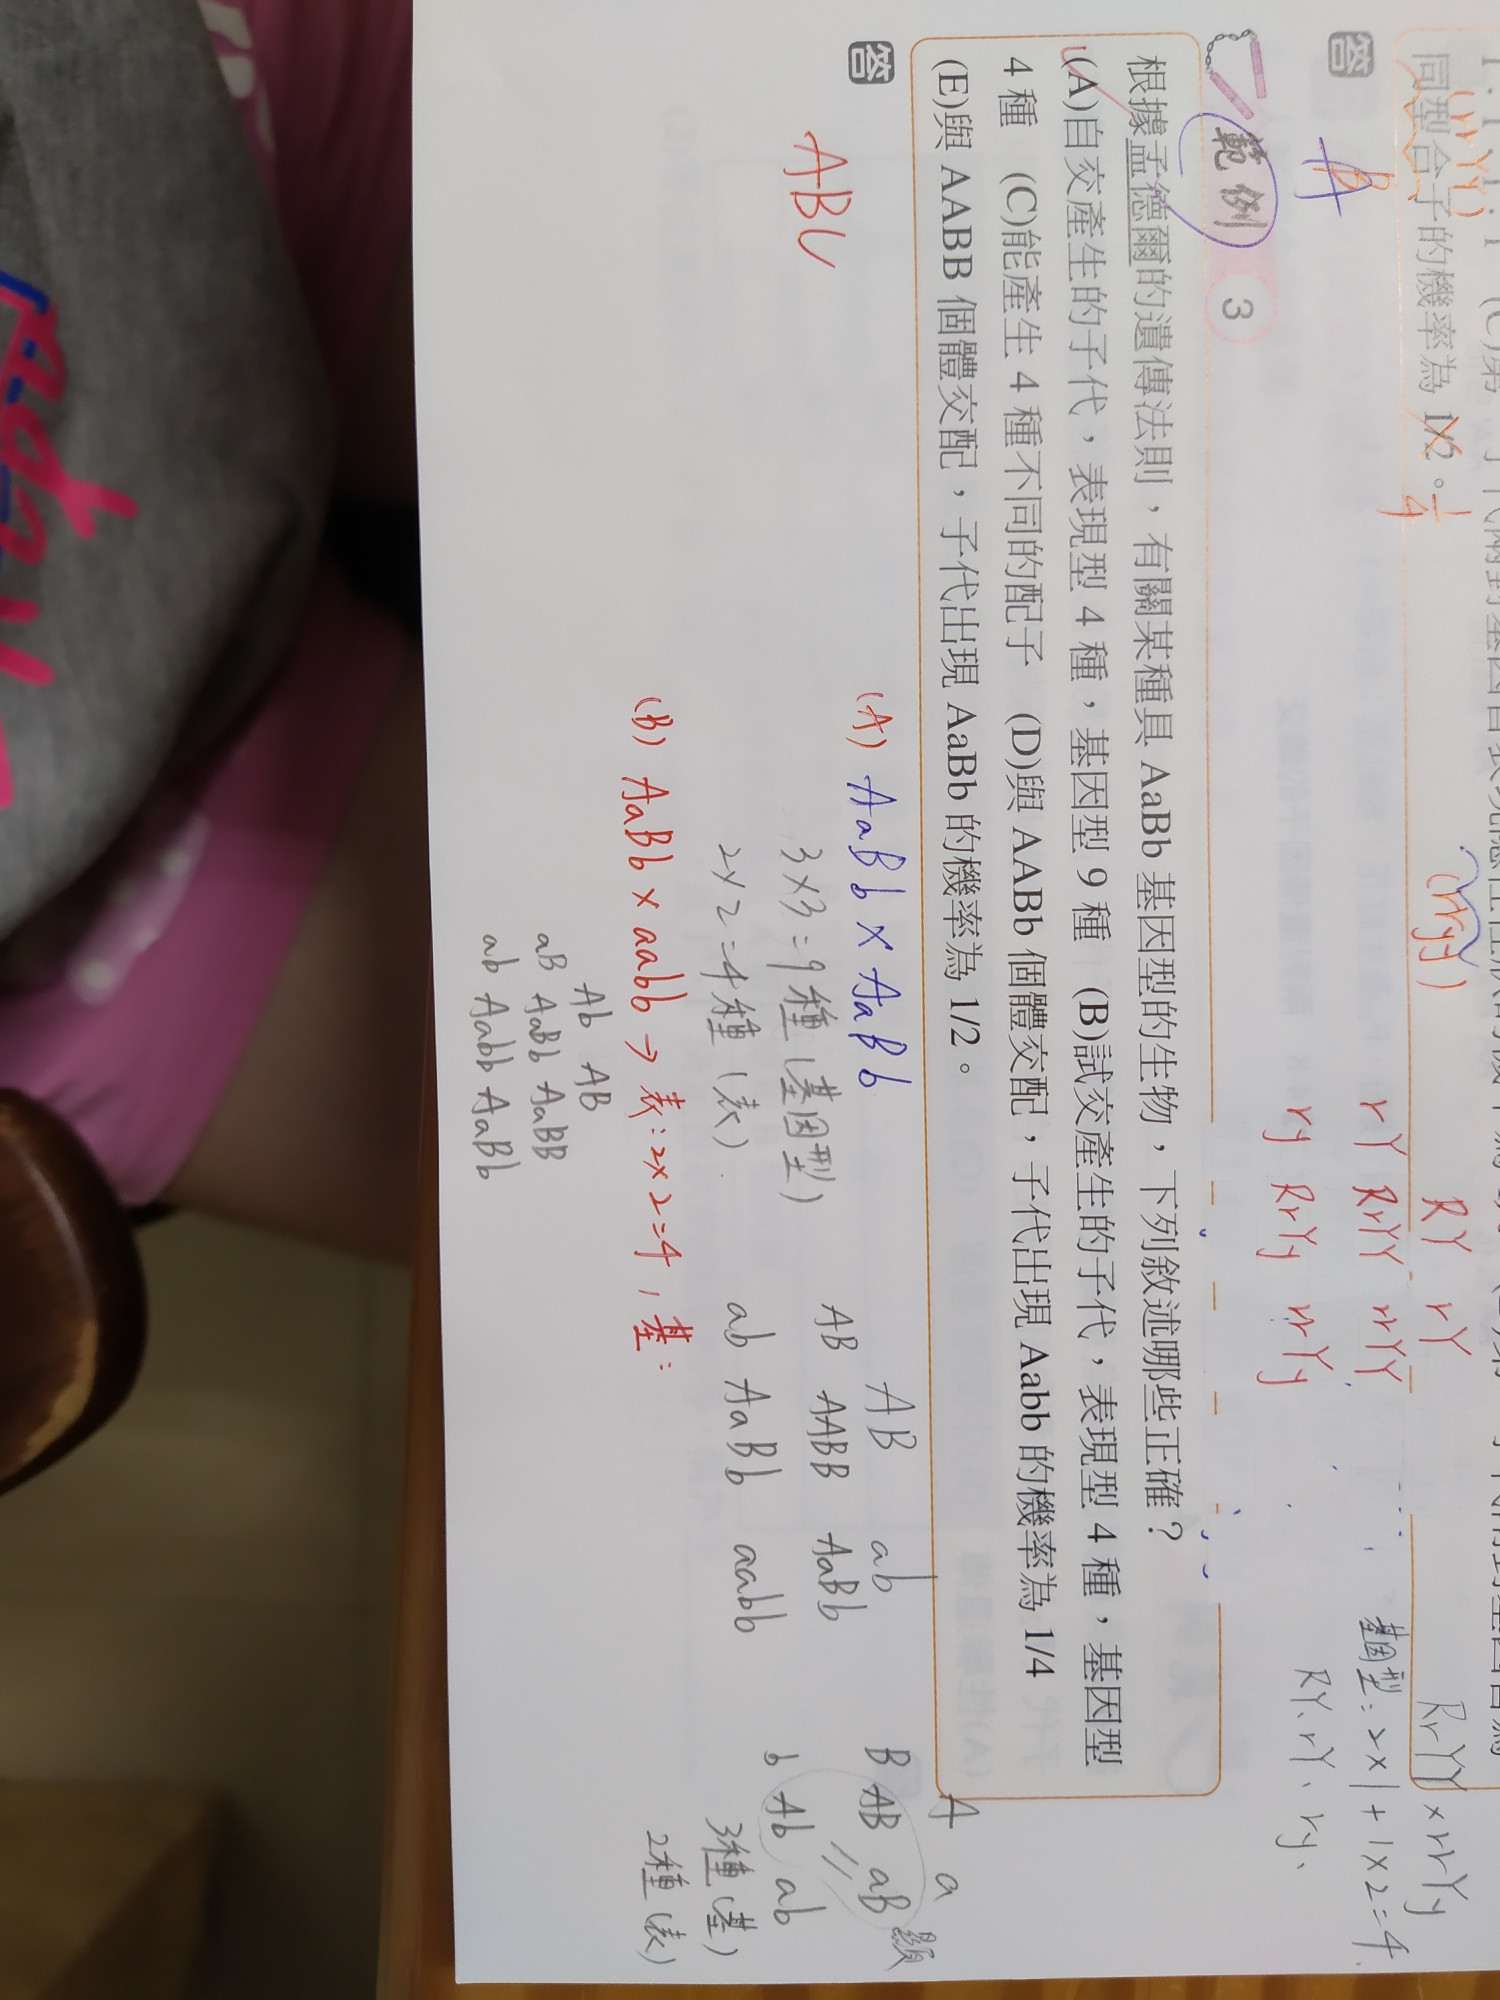 同型合子的機率為 1/2。 1/4
(rrYY)
(rrYy)
RY rY
rY RrYY rrYY
ry RrYy rrYy
RrYY × rrYy
基因型: 2×1+1×2=4
RY、rY、ry、
答
範例 3
根據孟德爾的遺傳法則，有關某種具 AaBb 基因型的生物，下列敘述哪些正確？
(A)自交產生的子代，表現型 4 種，基因型 9 種 (B)試交產生的子代，表現型 4 種，基因型
4 種 (C)能產生 4 種不同的配子 (D)與 AABb 個體交配，子代出現 Aabb 的機率為 1/4
(E)與 AABB 個體交配，子代出現 AaBb 的機率為 1/2。
答
ABC
(A) AaBb × AaBb
3×3=9種(基因型)
2×2=4種(表)
AB ab
AB AABB AaBb
ab AaBb aabb
A a
B AB aB 顯
b Ab ab
3種(基)
2種(表)
(B) AaBb × aabb → 表:2×2=4, 基:
Ab AB
aB AaBb AaBB
ab Aabb AaBb